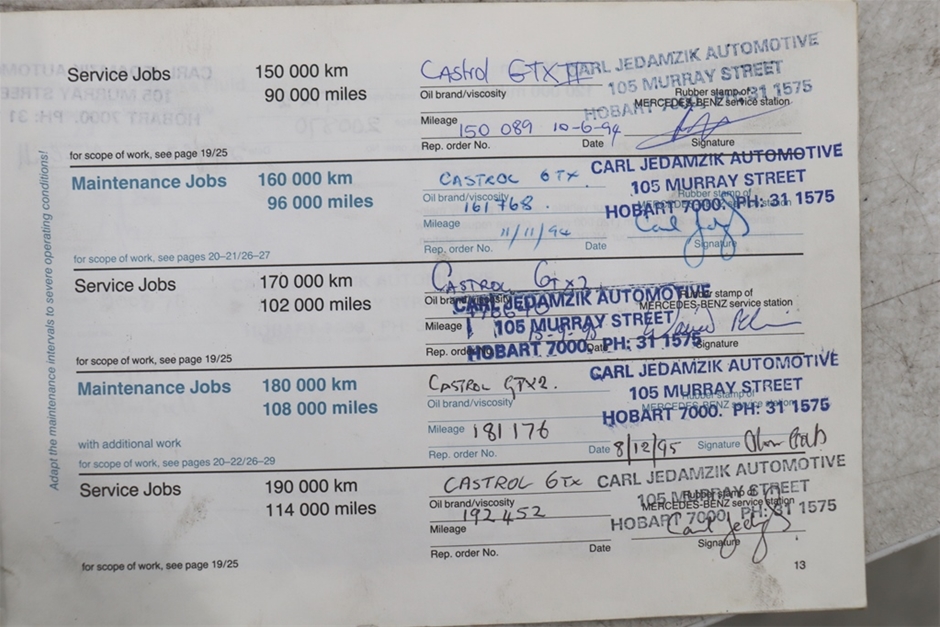 Adapt the maintenance intervals to severe operating conditions!
Service Jobs 150 000 km
90 000 miles
Castrol GTX II
Oil brand/viscosity
Mileage
150 089 10-6-94
Rep. order No. Date
CARL JEDAMZIK AUTOMOTIVE
105 MURRAY STREET
Rubber stamp of
MERCEDES-BENZ service station
HOBART 7000. PH: 31 1575
Signature
for scope of work, see page 19/25
Maintenance Jobs 160 000 km
96 000 miles
CASTROL GTX
Oil brand/viscosity
161768.
Mileage
11/11/94
Rep. order No. Date
CARL JEDAMZIK AUTOMOTIVE
105 MURRAY STREET
Rubber stamp of
HOBART 7000. PH: 31 1575
Signature
for scope of work, see pages 20–21/26–27
Service Jobs 170 000 km
102 000 miles
CASTROL GTX2
Oil brand/viscosity
CARL JEDAMZIK AUTOMOTIVE
Rubber stamp of
MERCEDES-BENZ service station
Mileage
105 MURRAY STREET
Rep. order Date
HOBART 7000. PH: 31 1575
Signature
for scope of work, see page 19/25
Maintenance Jobs 180 000 km
108 000 miles
CASTROL GTX2.
Oil brand/viscosity
Mileage 181176
Rep. order No. Date 8/12/95 Signature
CARL JEDAMZIK AUTOMOTIVE
105 MURRAY STREET
Rubber stamp of
MERCEDES-BENZ service station
HOBART 7000. PH: 31 1575
with additional work
for scope of work, see pages 20–22/26–29
Service Jobs 190 000 km
114 000 miles
CASTROL GTX
Oil brand/viscosity
192452
Mileage
Rep. order No. Date
CARL JEDAMZIK AUTOMOTIVE
105 MURRAY STREET
Rubber stamp of
MERCEDES-BENZ service station
HOBART 7000. PH: 31 1575
Signature
for scope of work, see page 19/25
13